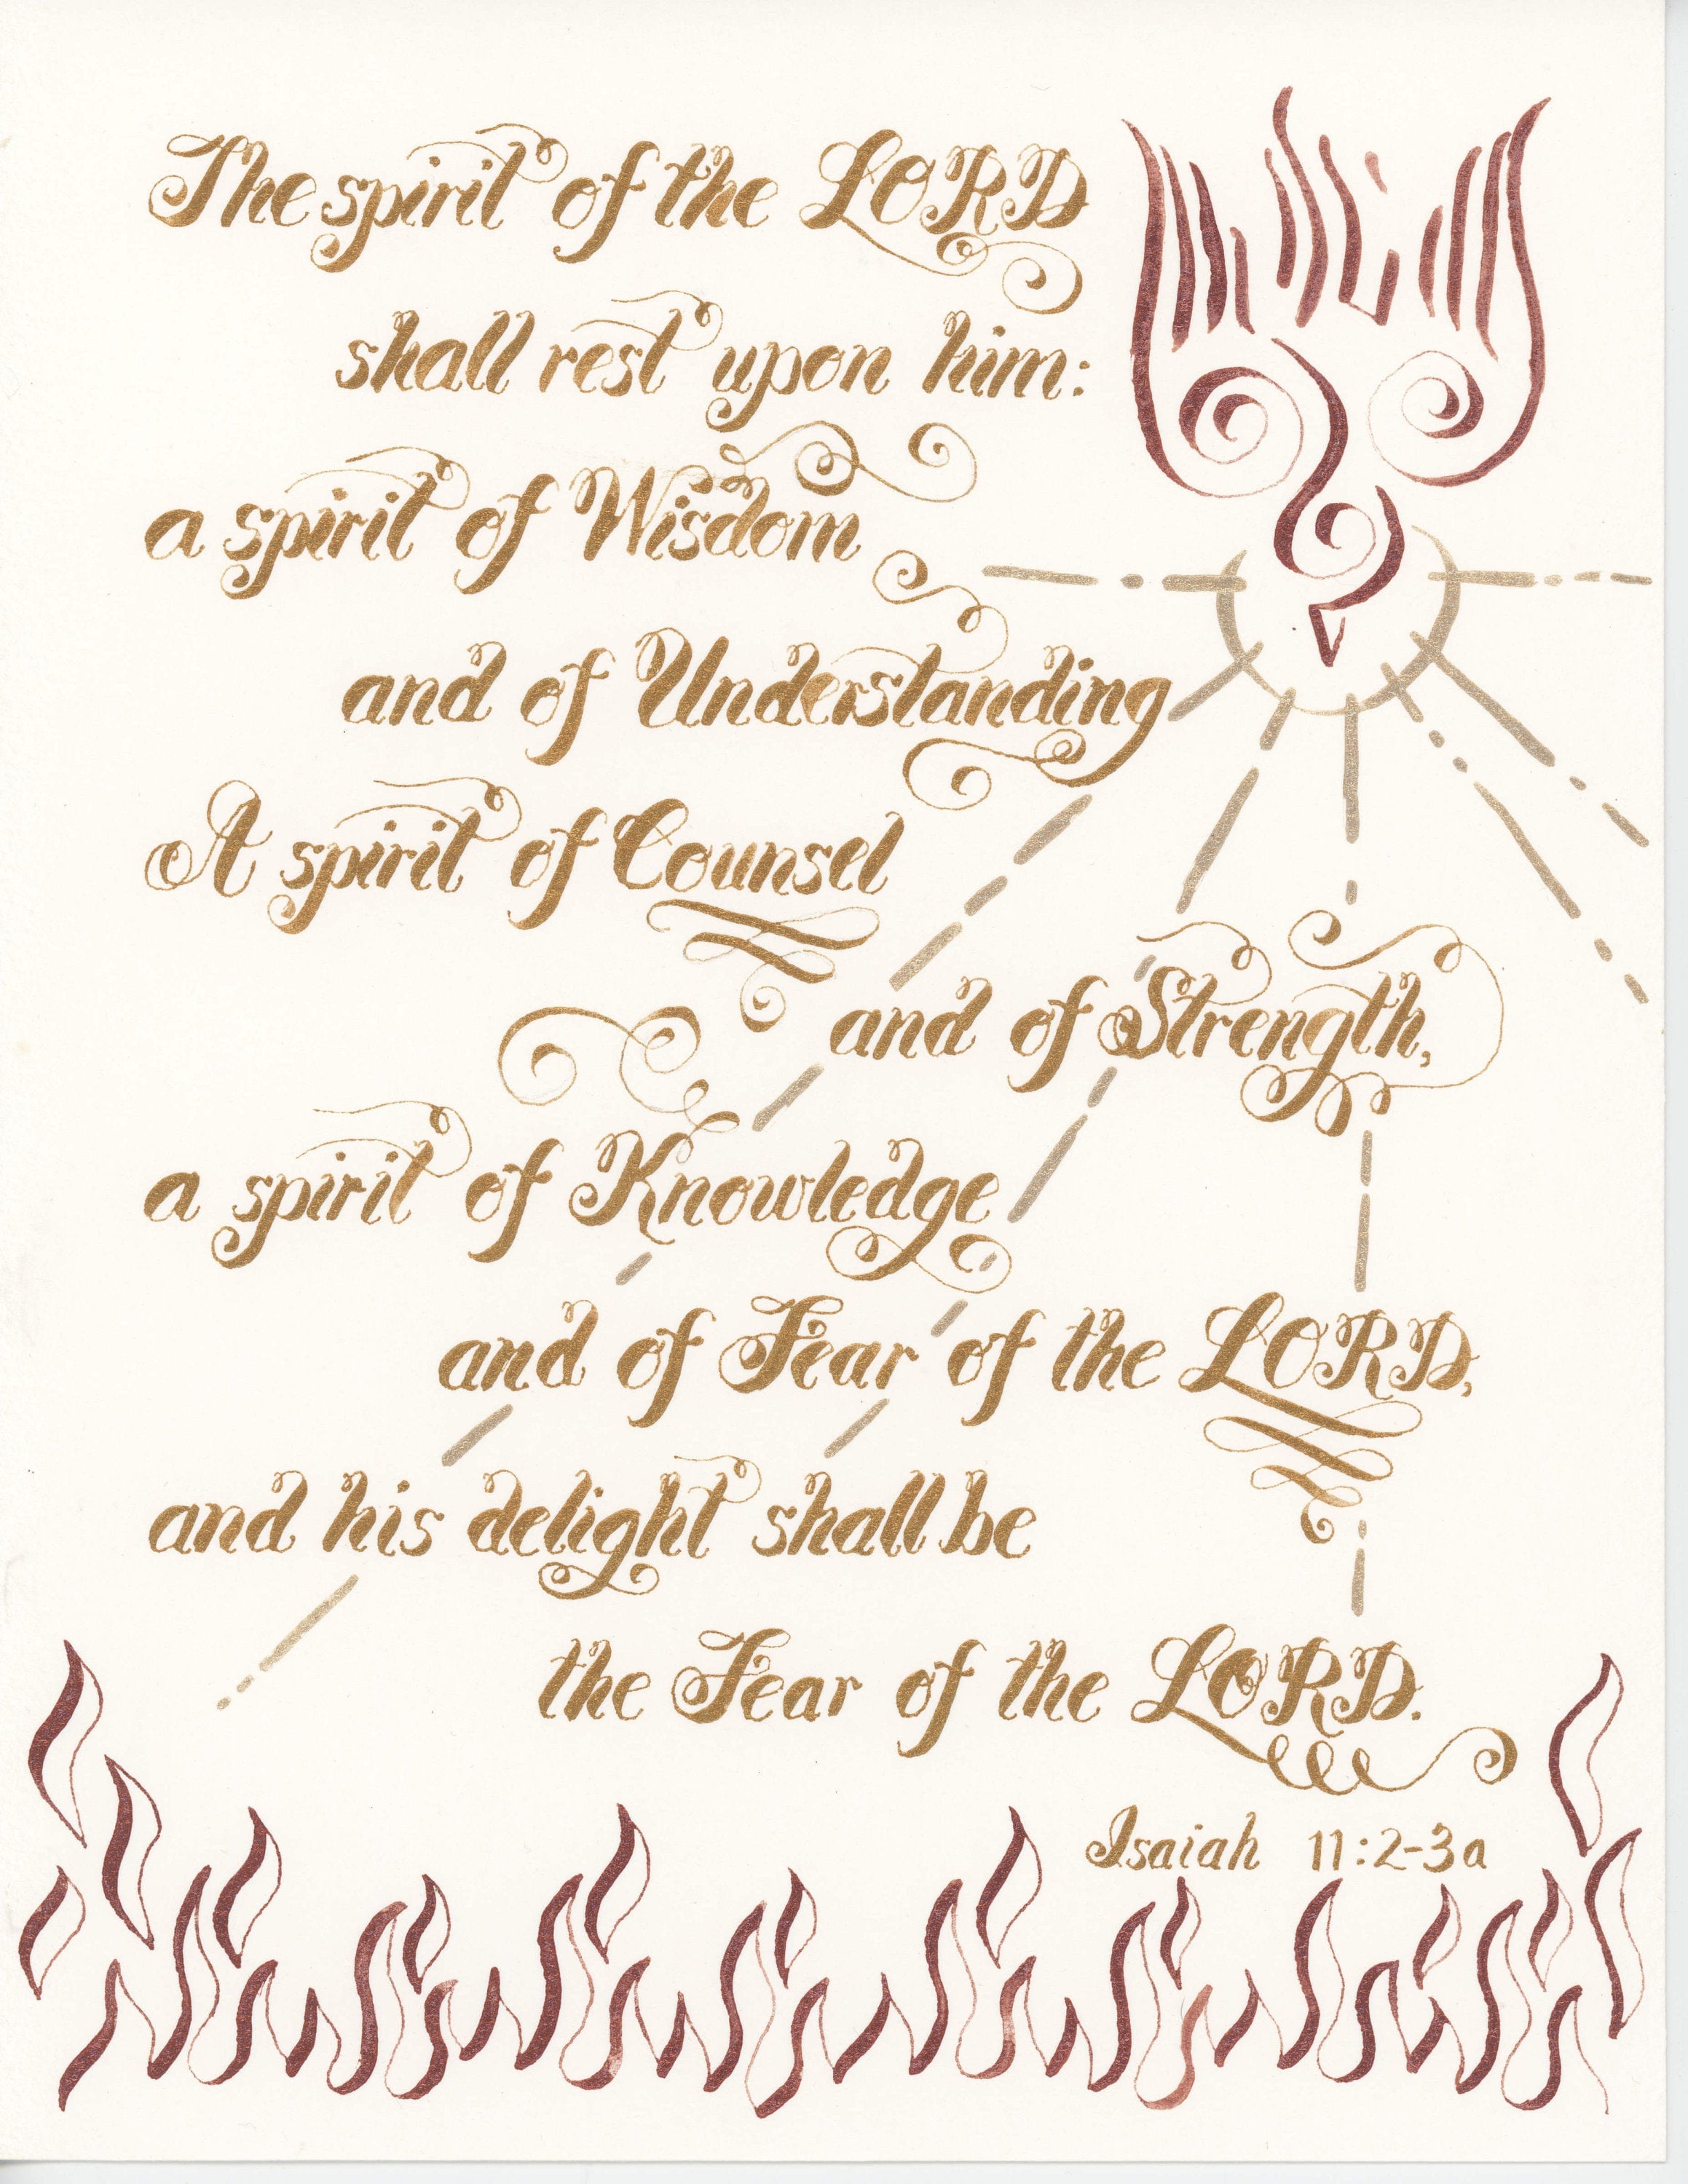 The spirit of the LORD
shall rest upon him:
a spirit of Wisdom
and of Understanding
A spirit of Counsel
and of Strength,
a spirit of Knowledge
and of Fear of the LORD,
and his delight shall be
the Fear of the LORD.
Isaiah 11:2-3a